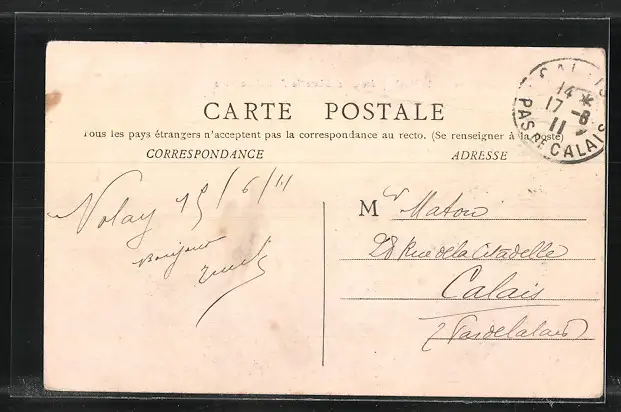 CARTE POSTALE
Tous les pays étrangers n'acceptent pas la correspondance au recto. (Se renseigner à la poste)
CORRESPONDANCE
ADRESSE
CALAIS
14 *
17 - 6
11
PAS DE CALAIS
Volay 15/6/11
Bonjour
Mr Maton
28 Rue de la Citadelle
Calais
Pas de Calais